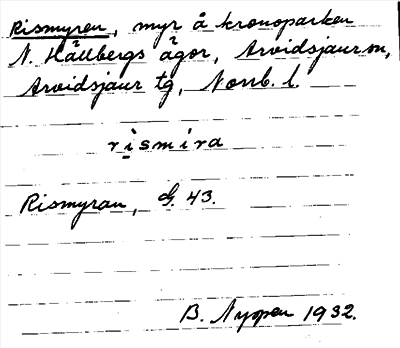 Rismyren, myr å kronoparken
N. Hällbergs ägor, Arvidsjaur sn,
Arvidsjaur tg, Norrb. l.
rismira
Rismyran, G. 43.
B. Nyman 1932.